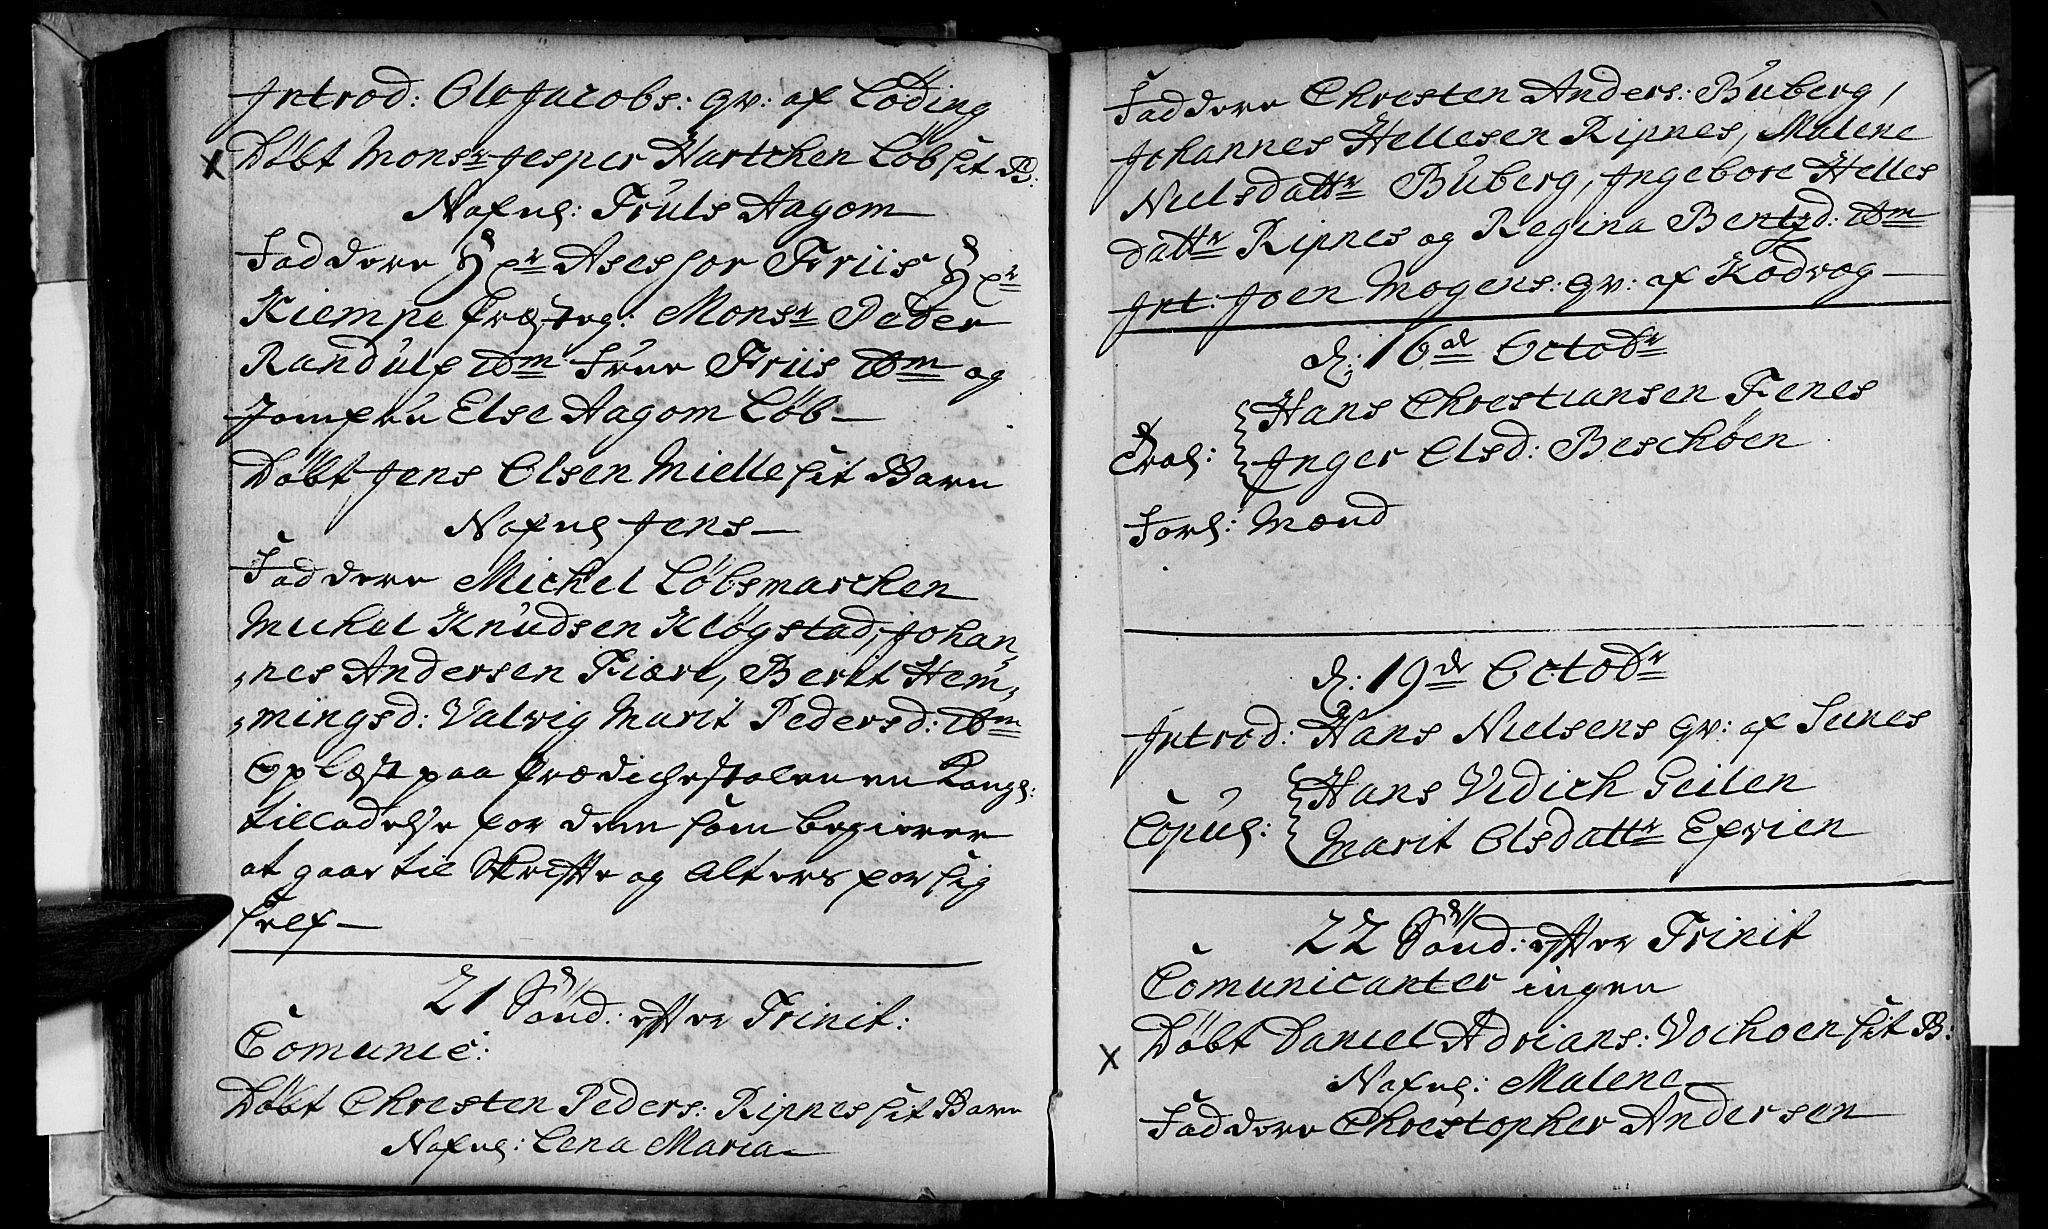 Introd: Ole Jacobs: qv: af Löding
x Döbt Monsr Jesper Hartchen Löb sit B:
Nafnl: Truls Aagom
Faddere Hr Asessor Friis Hr
Kiempe Monsr Peder
Randulf ibm Frue Friis ibm og
Jomfru Else Aagom Löb
Döbt Jens Olsen Mielle sit Barn
Nafnl Jens
Faddere Michel Löbsmarchen
Michel Knudsen Klögstad, Johan,
,nes Andersen Fiære, Berit Hem,
,mingsd: Valvig Marit Pedersd: ibm
Oplæst paa Prædichestolen en Kongl:
tilladelse for dem som begierer
at gaae til Skrifte og Alters for sig
self
21 Sönd: efter Trinit:
Comunic:
Döbt Chresten Peders: Ripnes sit Barn
Nafnl: Lena Maria
Faddere Chresten Anders: Buberg,
Johannes Hellesen Ripnes, Malene
Nielsdattr Buberg, Ingebore Helles
dattr Ripnes og Regina Bentsd: ibm
Int: Joen Mogens: qv: af Kodvog
d: 16de Octobr
Trol: Hans Chrestiansen Fenes
Inger Olsd: Beschöen
Forl: Mænd
d: 19de Octobr
Introd: Hans Nielsens qv: af Seines
Copul: Hans Vidich Geilen
Marit Olsdattr Efvien
22 Sönd: efter Trinit
Comunicanter ingen
x Döbt Daniel Adrians: Vochoen sit B:
Nafnl: Malene
Faddere Chrestopher Andersen